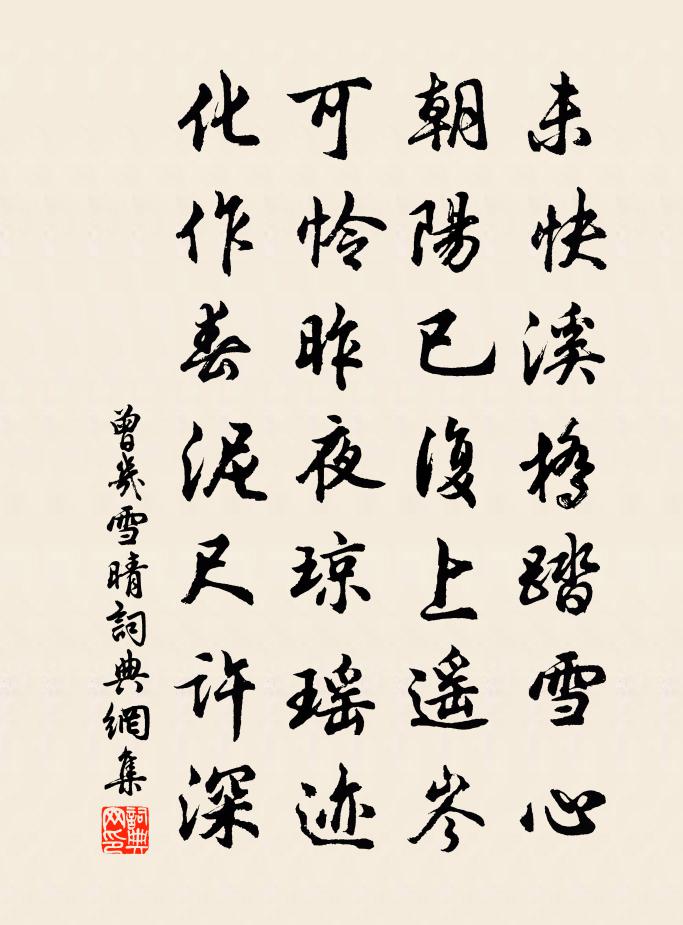 未快溪橋踏雪心
朝陽已復上遥岑
可怜昨夜琼瑶迹
化作春泥尺许深
曾幾雪晴詞典網集
詞典网印